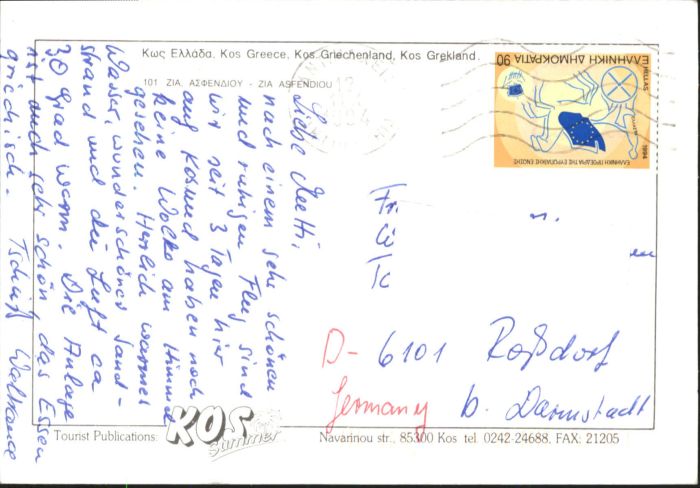 Κως Ελλάδα, Kos Greece, Kos Griechenland, Kos Grekland.
101 ZIA, ΑΣΦΕΝΔΙΟΥ - ZIA ASFENDIOU
Liebe Metti,
nach einem sehr schönen
und ruhigen Flug sind
wir seit 3 Tagen hier
auf Kos und haben noch
keine Wolke am Himmel
gesehen. Herrlich warmes
Wasser, wunderschöner Sand-
strand und die Luft ca
30 Grad warm. Die Anlage
ist auch sehr schön, das Essen
griechisch. Tschüß
90 ΕΛΛΗΝΙΚΗ ΔΗΜΟΚΡΑΤΙΑ
HELLAS
1994
ΕΛΛΗΝΙΚΗ ΠΡΟΕΔΡΙΑ ΤΗΣ ΕΥΡΩΠΑΪΚΗΣ ΕΝΩΣΗΣ
Fr.
D- 6101 Roßdorf
Germany b. Darmstadt
Tourist Publications:
KOS
Summer
Navarinou str., 85300 Kos tel. 0242-24688, FAX: 21205